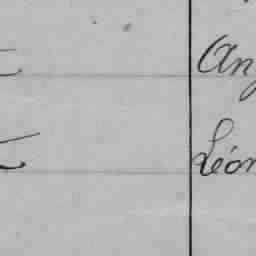 Ang
Léon